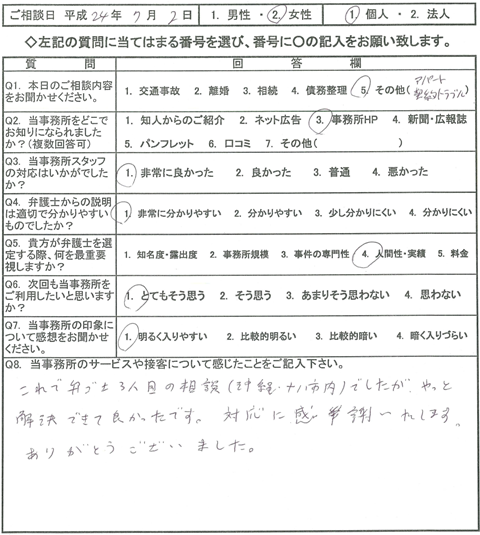 ご相談日 平成 24年 7月 2日 1. 男性 ・ 2. 女性 1. 個人 ・ 2. 法人
◇左記の質問に当てはまる番号を選び、番号に○の記入をお願い致します。
質 問 回 答 欄
Q1. 本日のご相談内容をお聞かせください。 1. 交通事故 2. 離婚 3. 相続 4. 債務整理 5. その他( アパート契約トラブル )
Q2. 当事務所をどこでお知りになられましたか?(複数回答可) 1. 知人からのご紹介 2. ネット広告 3. 事務所HP 4. 新聞・広報誌
5. パンフレット 6. 口コミ 7. その他( )
Q3. 当事務所スタッフの対応はいかがでしたか? 1. 非常に良かった 2. 良かった 3. 普通 4. 悪かった
Q4. 弁護士からの説明は適切で分かりやすいものでしたか? 1. 非常に分かりやすい 2. 分かりやすい 3. 少し分かりにくい 4. 分かりにくい
Q5. 貴方が弁護士を選定する際、何を最重要視しますか? 1. 知名度・露出度 2. 事務所規模 3. 事件の専門性 4. 人間性・実績 5. 料金
Q6. 次回も当事務所をご利用したいと思いますか? 1. とてもそう思う 2. そう思う 3. あまりそう思わない 4. 思わない
Q7. 当事務所の印象について感想をお聞かせください。 1. 明るく入りやすい 2. 比較的明るい 3. 比較的暗い 4. 暗く入りづらい
Q8. 当事務所のサービスや接客について感じたことをご記入下さい。
これで弁ゴ士3人目の相談( 市内)でしたが、やっと
解決できて良かったです。対応に感謝 します。
ありがとうございました。